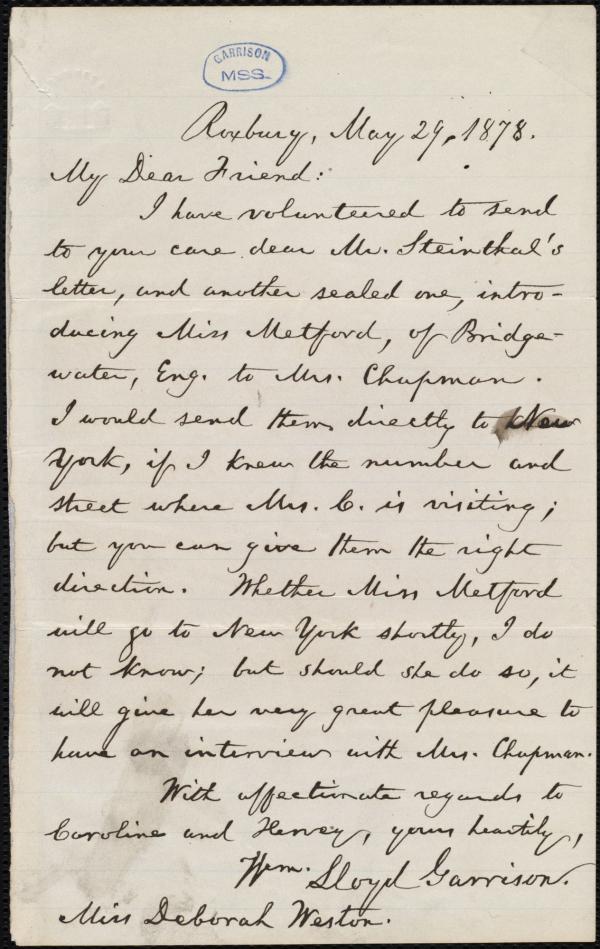 GARRISON
MSS.
Roxbury, May 29, 1878.
My Dear Friend:
I have volunteered to send
to your care dear Mr. Steinthal's
letter, and another sealed one, intro-
ducing Miss Metford, of Bridge-
water, Eng. to Mrs. Chapman.
I would send them directly to New
York, if I knew the number and
street where Mrs. C. is visiting;
but you can give them the right
direction. Whether Miss Metford
will go to New York shortly, I do
not know; but should she do so, it
will give her very great pleasure to
have an interview with Mrs. Chapman.
With affectionate regards to
Caroline and Hervey, yours heartily,
Wm. Lloyd Garrison.
Miss Deborah Weston.